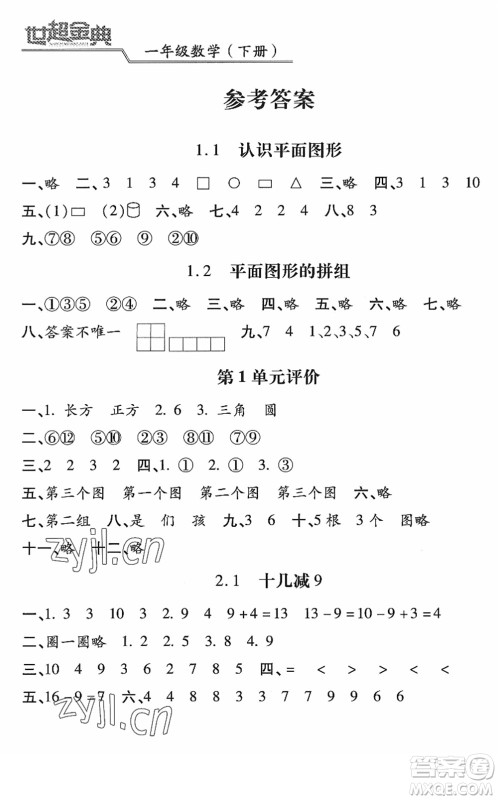 世超金典
一年级数学(下册)
参考答案
1.1 认识平面图形
一、略 二、3 1 3 4 □ ○ ▭ △ 三、略 四、3 1 3 10
五、(1)▭ (2) 六、略 七、4 2 2 4 八、8 3
九、⑦⑧ ⑤⑥ ⑨ ②⑩
1.2 平面图形的拼组
一、①③⑤ ②④ 二、略 三、略 四、略 五、略 六、略 七、略
八、答案不唯一 九、7 4 1、3、5、7 6
第1单元评价
一、1. 长方 正方 2. 6 3. 三角 圆
二、⑥⑫ ⑤⑩ ②③④⑪ ①⑧ ⑦⑨
三、2 2 3 2 四、1. ① 2. ① 3. ③
五、第三个图 第一个图 第二个图 第三个图 六、略
七、第二组 八、是 们 孩 九、3 6 十、5根 3个 图略
十一、略 十二、略
2.1 十几减9
一、1. 3 3 10 3 2. 9 4 9+4=13 13-9=4 3 1 3+1=4
二、圈一圈略 1. 2 2. 5 3. 8 4. 9
三、10 4 9 3 6 2 7 8 5 四、= < > < < <
五、16-9=7 六、略 七、2 3 4 5 6 7 8 9 8 7 6 6
zyjl.cn
zyjl.cn
答案圈
MXQE.COM